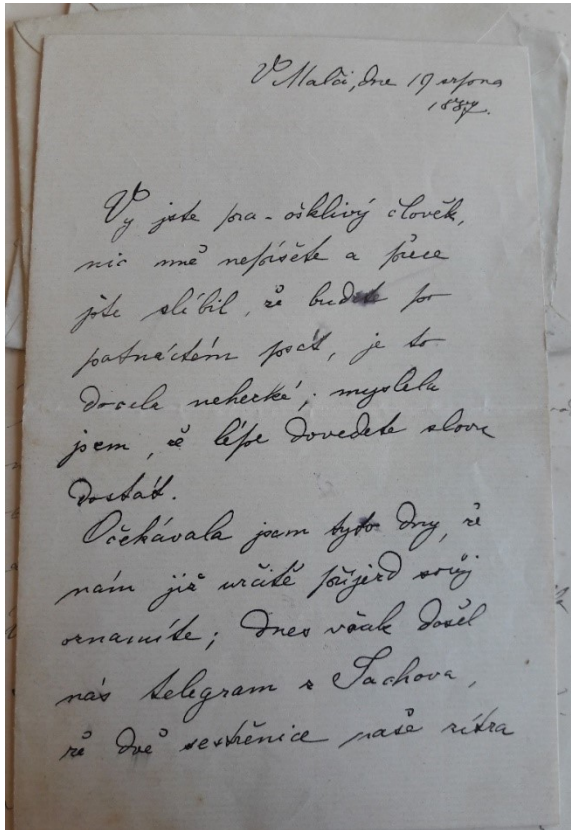 V Malči, dne 19 srpna
1887.
Vy jste pra-ošklivý člověk,
nic mně nepíšete a přece
jste slíbil, že budete po
patnáctém psát, je to
docela nehezké; myslela
jsem, že lépe dovedete slovu
dostát.
Očekávala jsem tyto dny, že
nám již určitě příjezd svůj
oznamíte; dnes však došel
nás telegram z Tachova,
že dvě sestřenice naše zítra